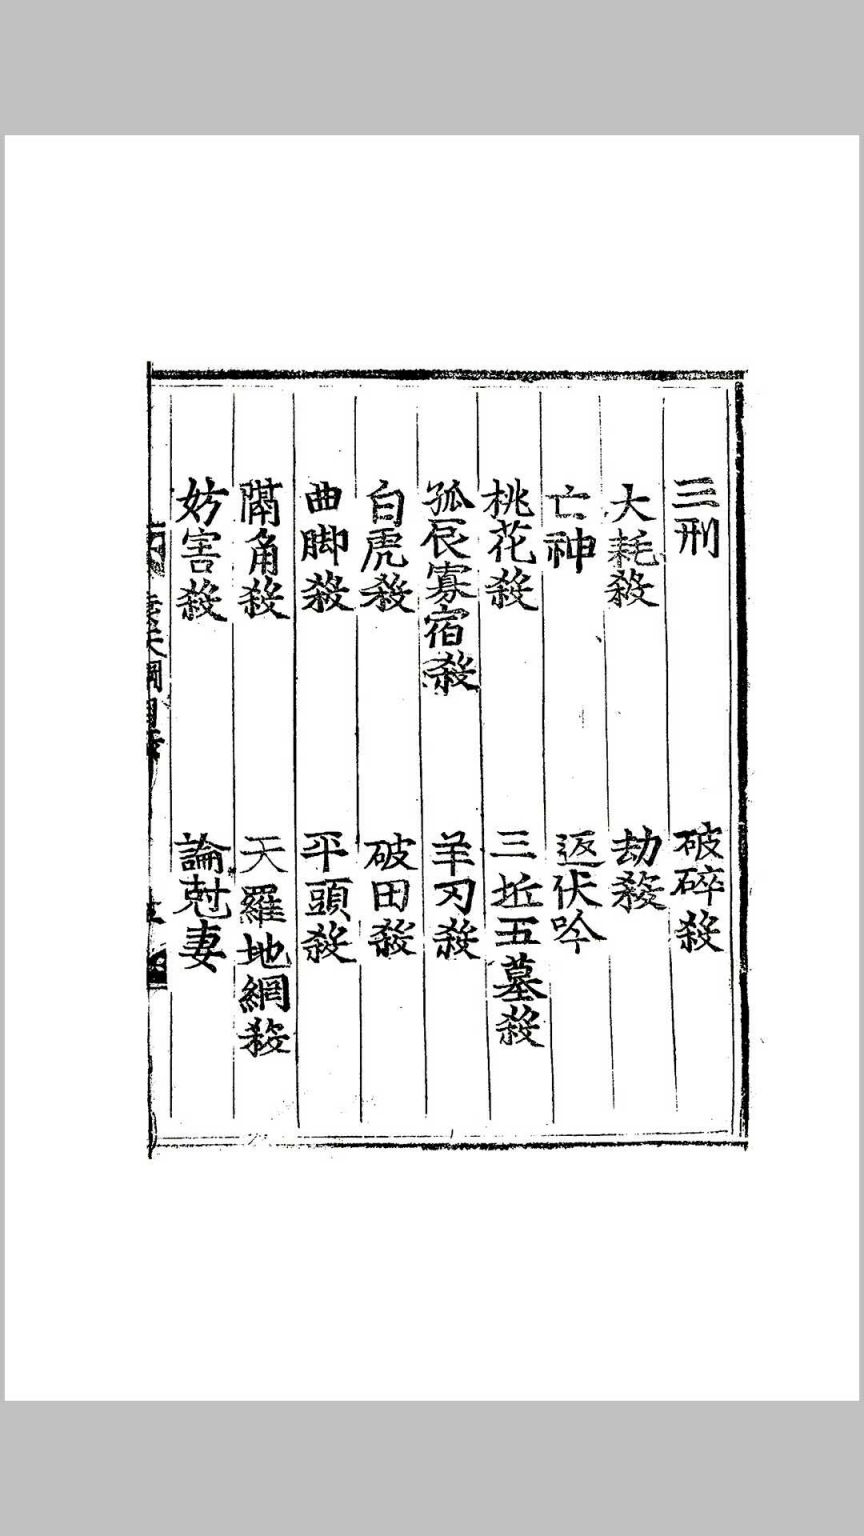 三刑
破碎殺
大耗殺
劫殺
亡神
返伏吟
桃花殺
三坵五墓殺
孤辰寡宿殺
羊刃殺
白虎殺
破田殺
曲脚殺
平頭殺
隔角殺
天羅地網殺
妨害殺
論尅妻
天綱目